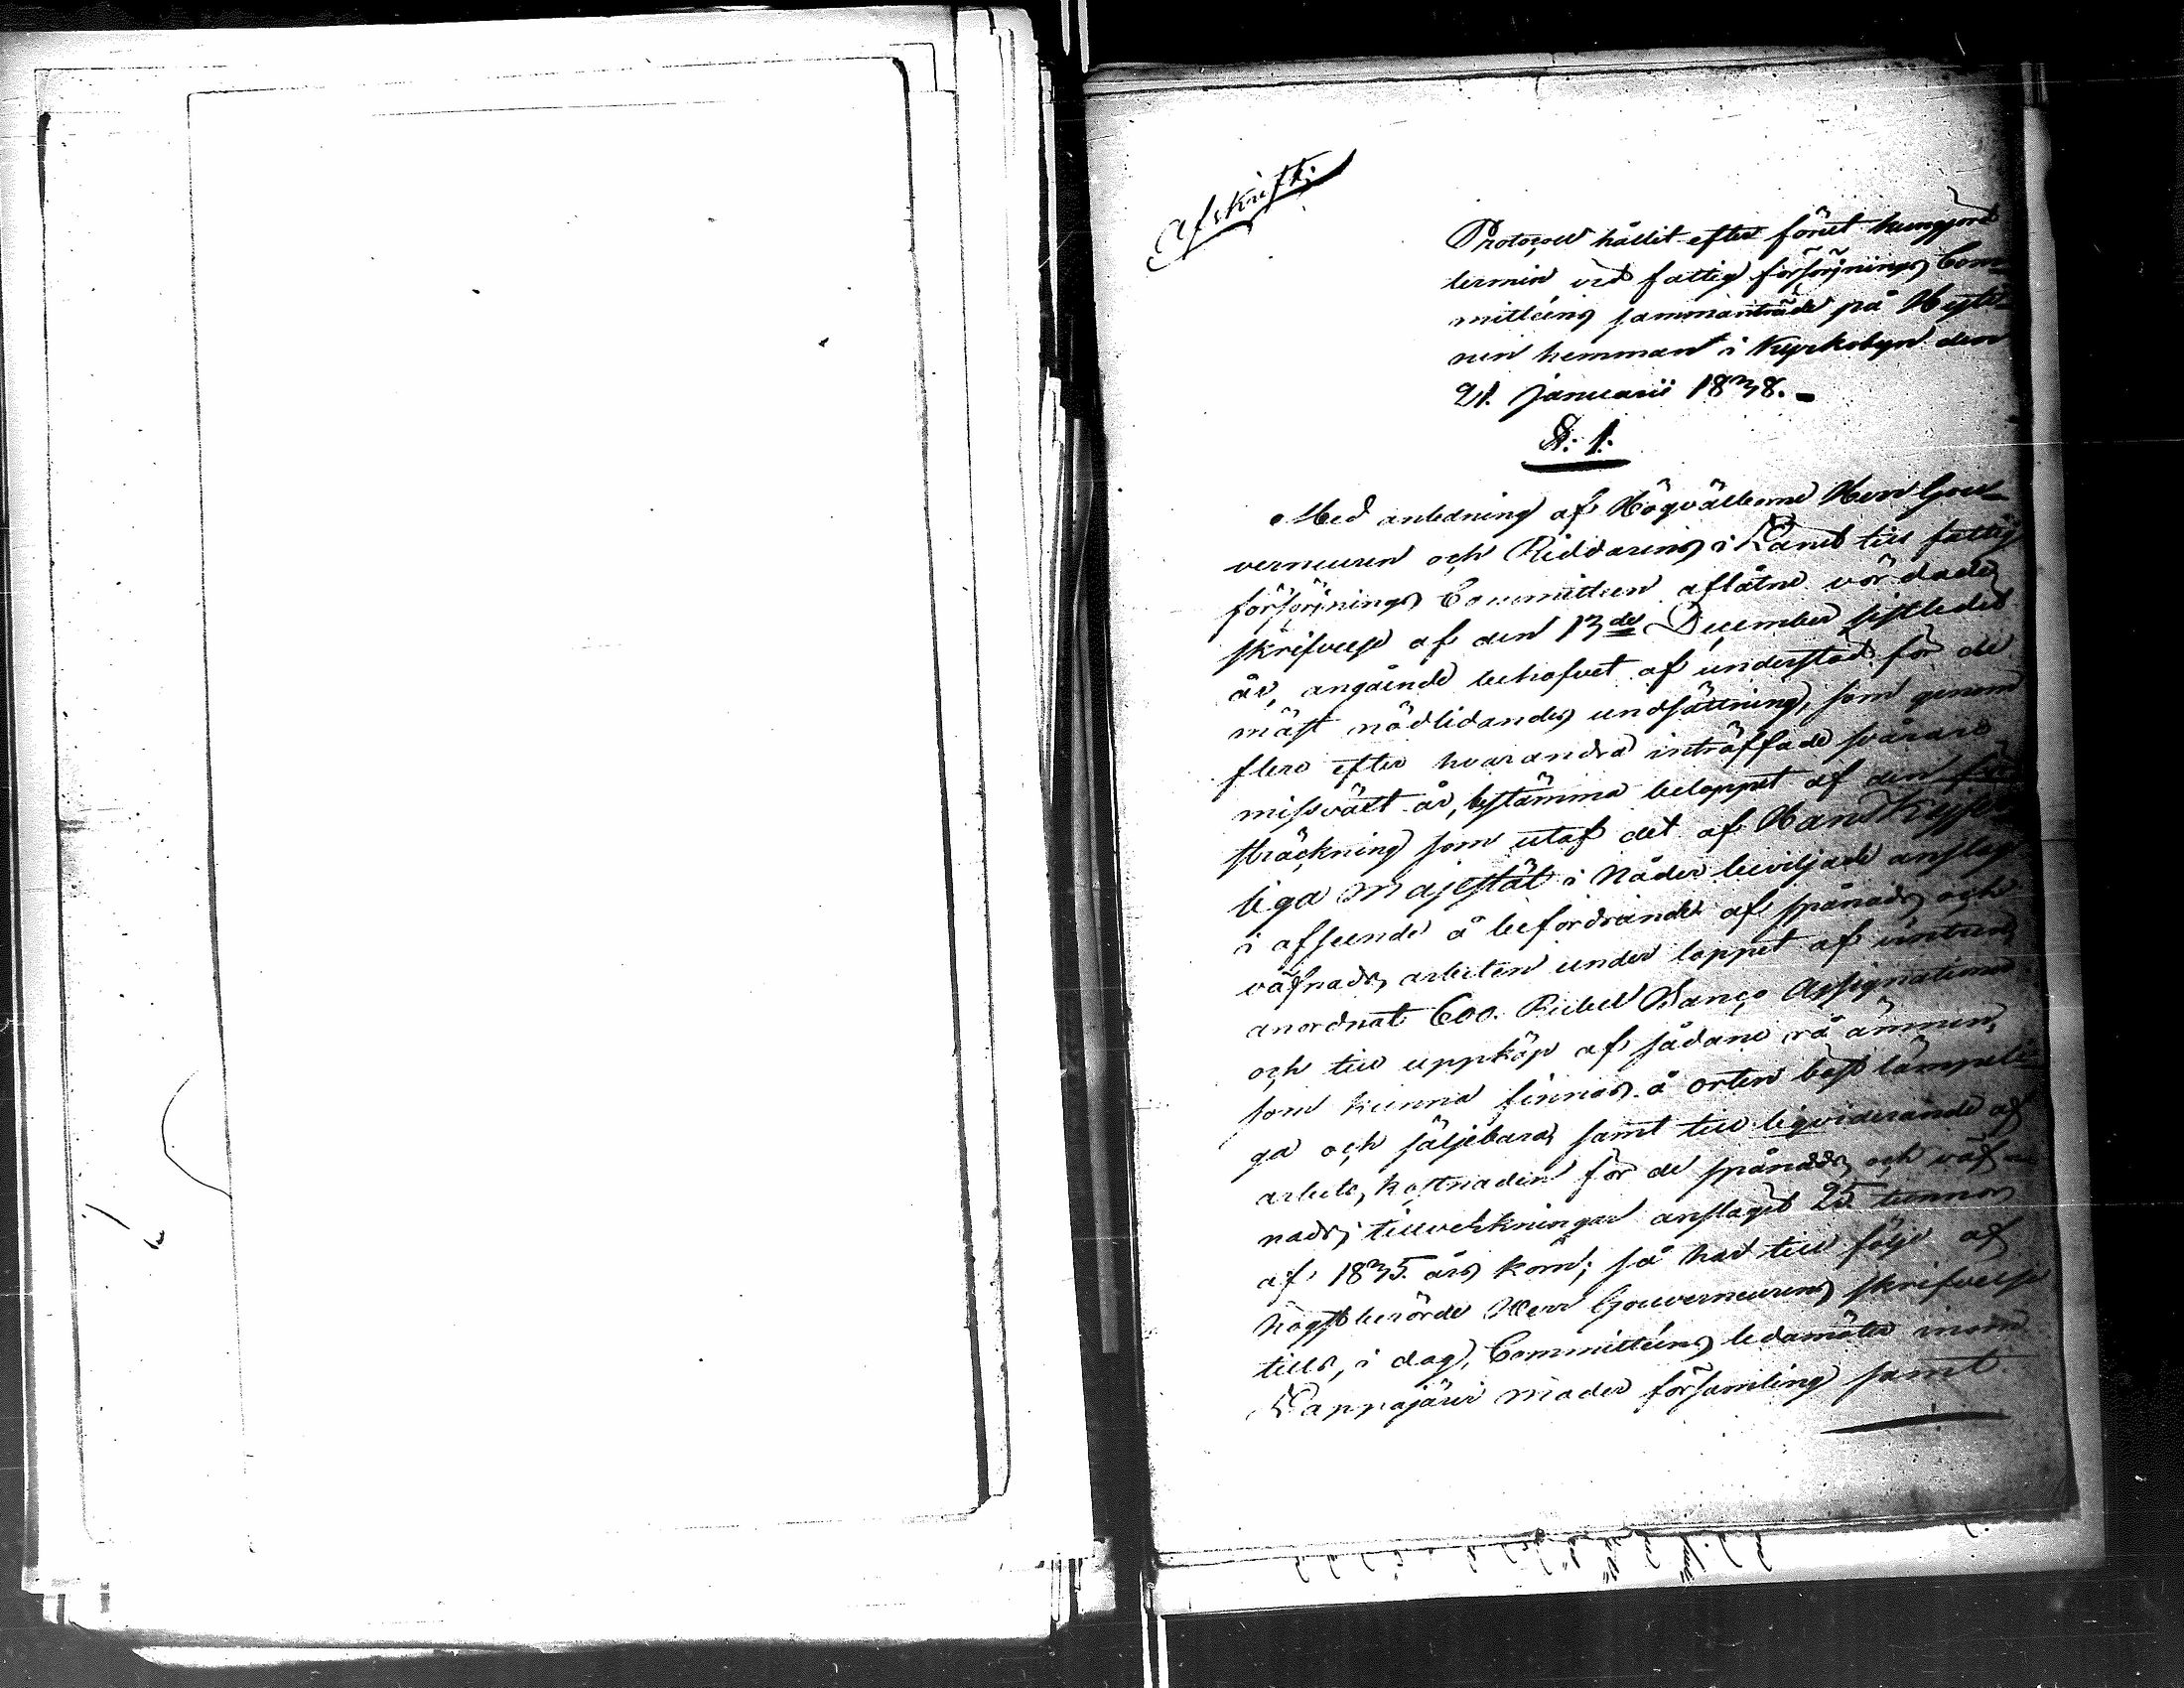 Afskrift;
Protocoll hållit efter förut kungjord
termin vid fattig försörjnings Com-
mitténs sammanträde på
nen hemman i Kyrkobyn den
21. Januarii 1838.
§: 1.
Med anledning af Högvälborne Herr Gou-
verneuren och Riddarens i Länet till fattig
försörjnings Committeen aflåtne vördade
skrifvelse af den 13de December sistledet
år, angående behofvet af understöd för de
mäst nödlidandes undsättning, som genom
flere efter hvarandra inträffade svårare
missväxt år, bestämma beloppet af den för
sträckning som utaf det af Hans Kejser
liga Majestät i Nåder beviljade anslag
i afseende å befordrande af spånads och
väfnads arbeten under loppet af vintern
anordnat 600. Rubel Banco Assignationer
och till uppköp af sådane rå ämnen,
som kunna finnas å orten bäst lämpeli-
ga och säljebara, samt till liqviderande af
arbets kostnaden för de spånads och väf-
nads tillverkningar anslagit 25 tunnor
af 1835. års korn; så had till följe af
högstberörde Herr Gouverneurens skrifvelse
tills, i dag, Committéens ledamöter inom
Lappajärvi moder församling samt